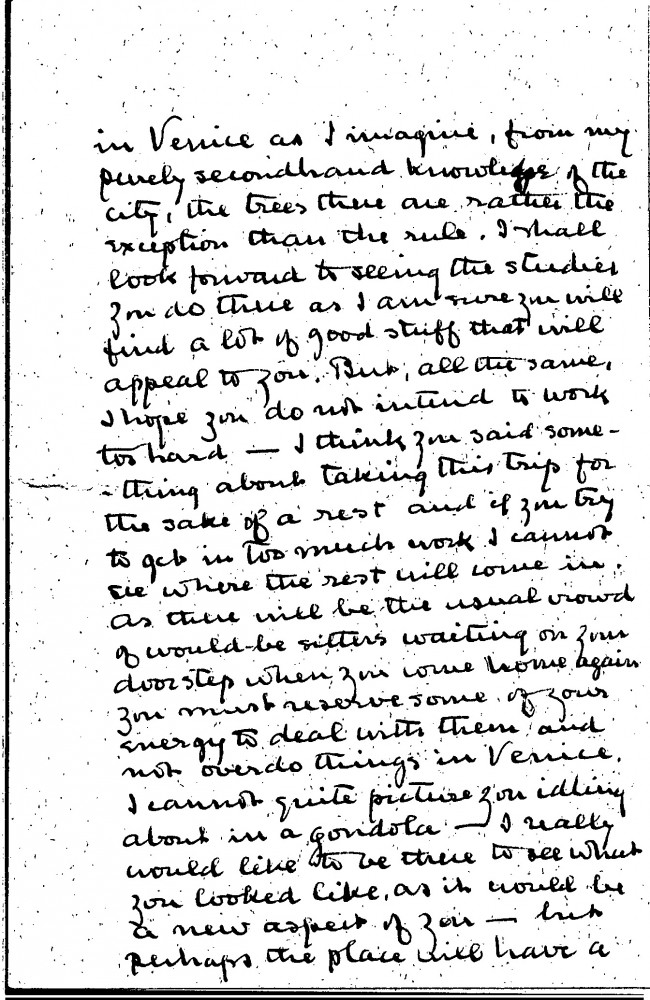 in Venice as I imagine, from my
purely secondhand knowledge of the
city, the trees there are rather the
exception than the rule. I shall
look forward to seeing the studies
you do there as I am sure you will
find a lot of good stuff that will
appeal to you. But, all the same,
I hope you do not intend to work
too hard — I think you said some-
-thing about taking this trip for
the sake of a rest and if you try
to get in too much work I cannot
see where the rest will come in.
As there will be the usual crowd
of would-be sitters waiting on your
doorstep when you come home again
you must reserve some of your
energy to deal with them and
not overdo things in Venice.
I cannot quite picture you idling
about in a gondola — I really
would like to be there to see what
you looked like, as it would be
a new aspect of you — but
perhaps the place will have a